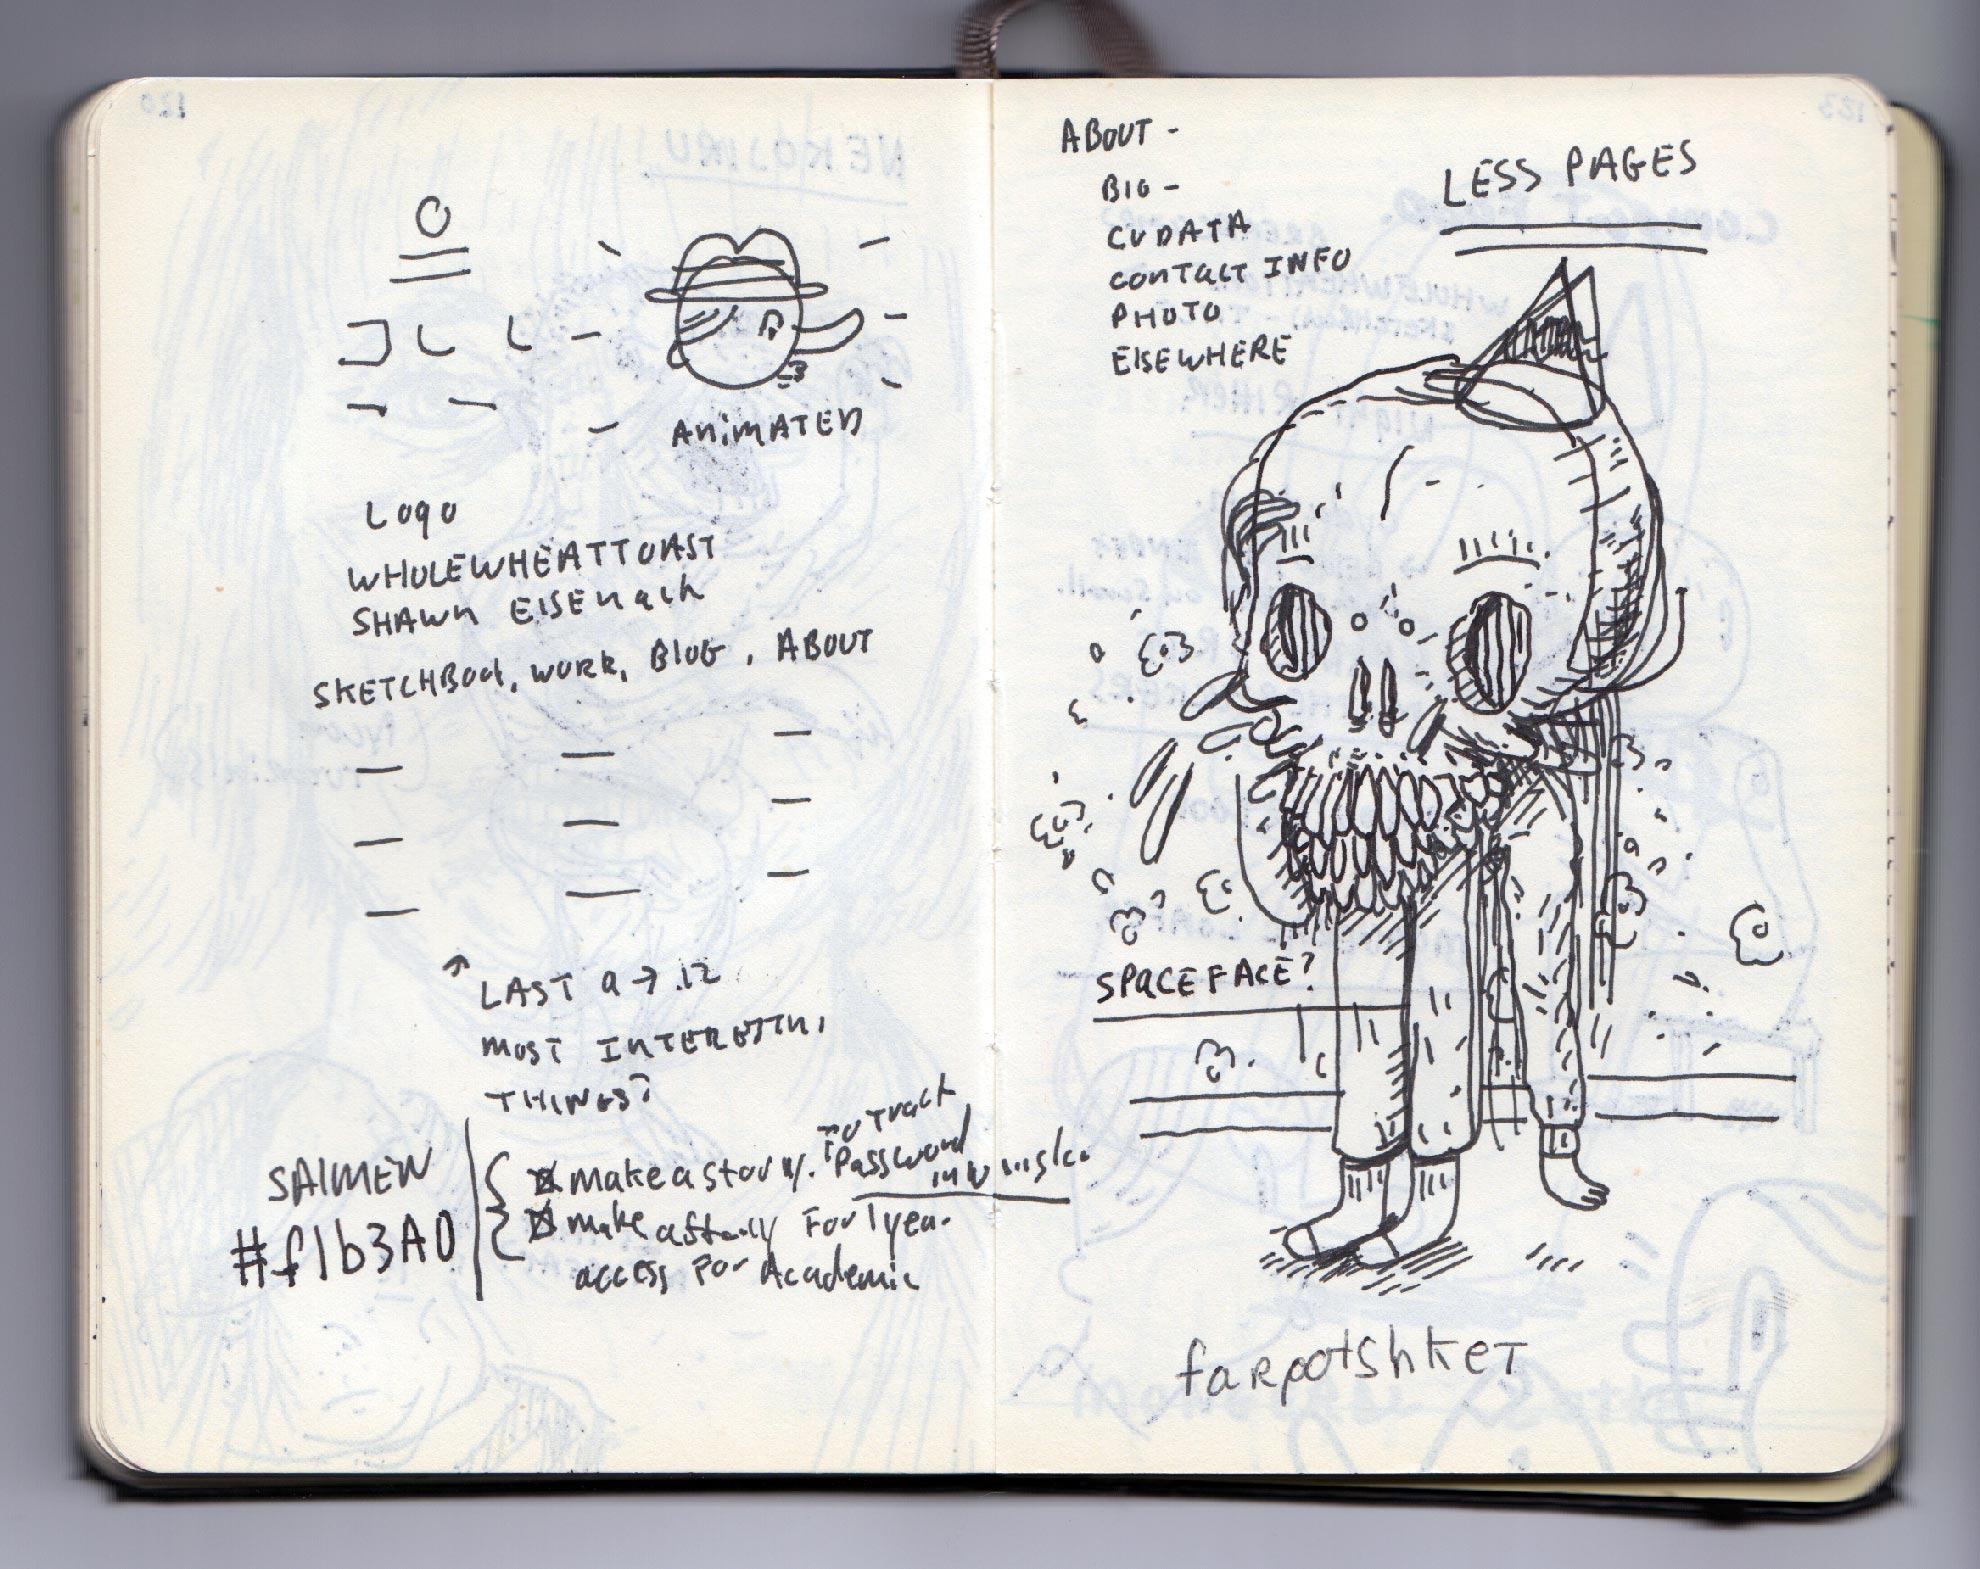 ANIMATED
LOGO
WHOLEWHEATTOAST
SHAWN EISENACH
SKETCHBOOK, WORK, BLOG, ABOUT
LAST 9 → 12
MOST INTERESTIN,
THINGS?
SALMEN
#f1b3A0
TO Track
make a story. Password
in
make a story For 1 year
access For Academic
ABOUT -
BIO -
CV DATA
CONTACT INFO
PHOTO
ELSEWHERE
LESS PAGES
SPACEFACE?
farpotshket
120
NEKOJIRU
123